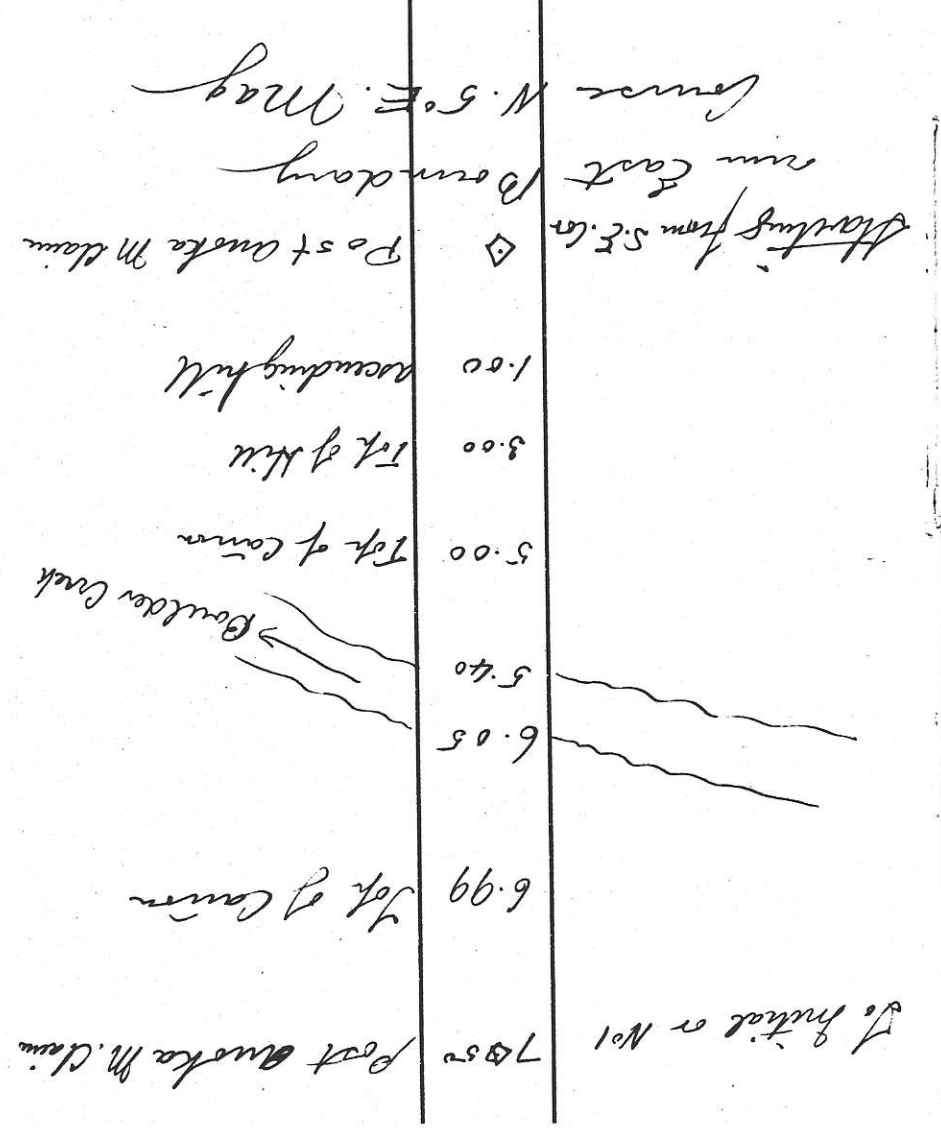 To Initial or No 1 7◇50 Post Anska M. Claim
6.99 Top of Cañon
6.05
5.40
Boulder Creek
5.00 Top of Cañon
3.00 Top of Hill
1.00 ascending hill
Starting from S.E. Cor ◇ Post Anska M Claim
run East Boundary
Course N. 5°E. Mag